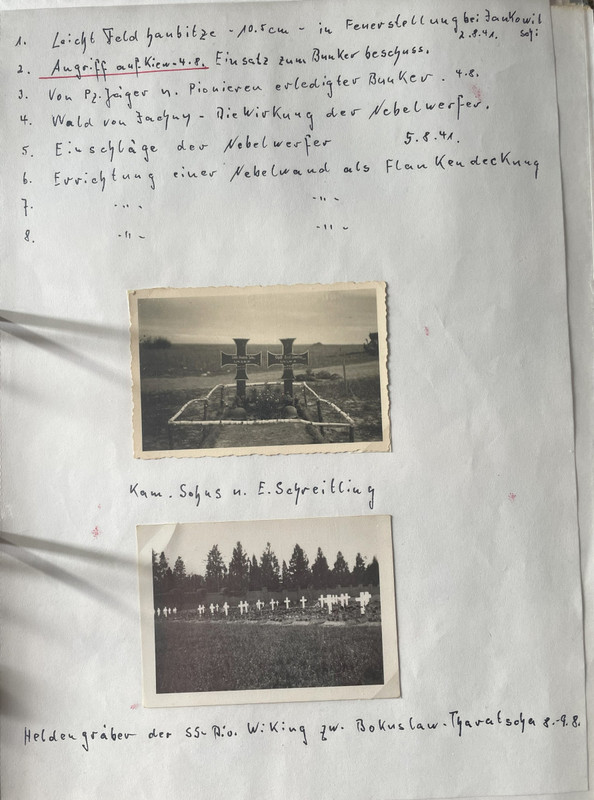 1. Leicht Feldhaubitze - 10.5cm - in Feuerstellung bei Jankowit
2.8.41.
2. Angriff auf Kiew - 4.8. Einsatz zum Bunker beschuss.
3. Von Pz. Jäger u. Pionieren erledigter Bunker. 4.8.
4. Wald von Jachny - Die Wirkung der Nebelwerfer.
5. Einschläge der Nebelwerfer 5.8.41.
6. Errichtung einer Nebelwand als Flankendeckung
7. -"- -"-
8. -"- -"-
Kam. Sohns u. E. Schreitling
Heldengräber der SS-Div. Wiking zw. Bokuslaw-Tharatscha 8.-9.8.